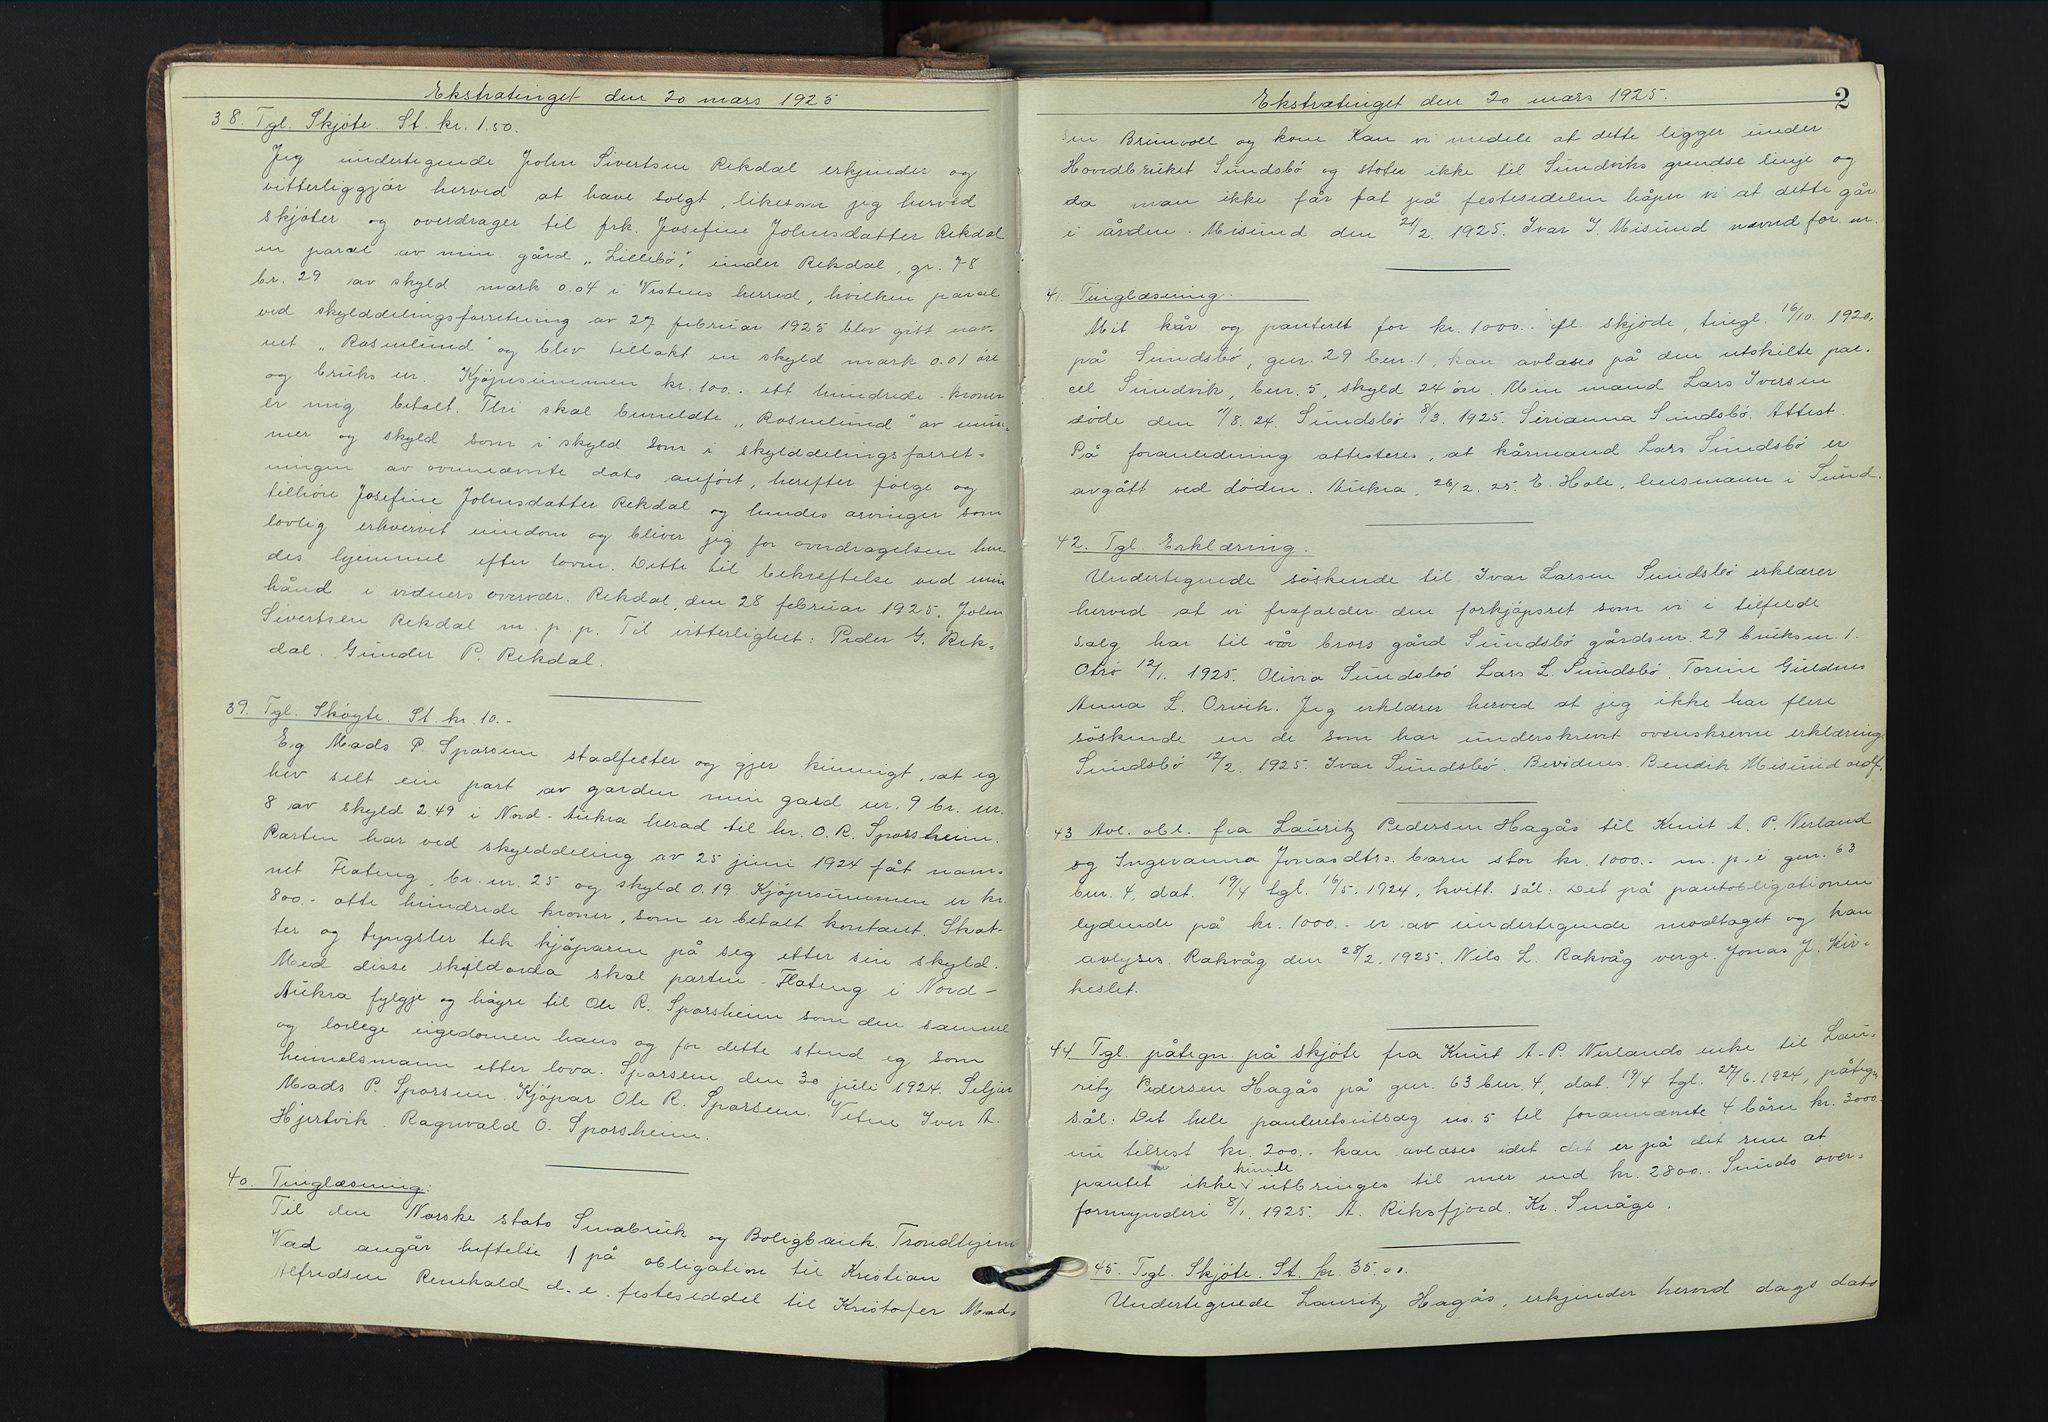 Ekstratinget den 20 mars 1925
38. Tgl. Skjøte. St. kr. 1.50.
Jeg undertegnede John Sivertsen Rekdal erkjender og
vitterliggjør herved at have solgt, likesom jeg herved
skjøter og overdrager til frk. Josefine Johnsdatter Rekdal
en parsel av min gård „Lillebø", under Rekdal, gr. 78
br. 29 av skyld mark 0.04 i Vestnes herred, hvilken parsel
ved skylddelingsforretning av 27 februar 1925 blev gitt nav-
net „Rosenlund" og blev tillakt en skyld mark 0.01 øre
og bruks nr. Kjøpesummen kr. 100.- ett hundrede - kroner
er mig betalt. Thi skal bemeldte „Rosenlund" av num-
mer og skyld som i skyld som i skylddelingsforret-
ningen av ovennævnte dato anført, herefter følge og
tilhøre Josefine Johnsdatter Rekdal og hendes arvinger som
lovlig erhvervet eiendom og bliver jeg for overdragelsen hen-
des hjemmel efter loven. Dette til bekreftelse ved min
hånd i vidners overvær. Rekdal, den 28 februar 1925. John
Sivertsen Rekdal m. p. p. Til vitterlighet: Peder G. Rek-
dal. Gunder P. Rekdal.
39. Tgl. Skøyte. St. kr. 10.-
Eg Mads P. Sporsem stadfester og gjer kunnigt, at eg
hev selt ein part av garden min gard nr. 9 br. nr.
8 av skyld 2.49 i Nord-Aukra herad til hr. O. R. Sporsheim.
Parten har ved skylddeling av 25 juni 1924 fåt nam-
net Flateng, br. nr. 25 og skyld 0.19. Kjøpesummen er kr.
800.- otte hundrede kroner, som er betalt kontant. Skat-
ter og tyngsler tek kjøparen på seg etter sin skyld.
Med disse skildorda skal parten - Flateng i Nord-
Aukra fylgje og høyre til Ole R. Sporsheim som den sannle
og lovlege eigedomen hans og for dette stend eg som
heimelsmann etter lova. Sporsem den 30 juli 1924. Seljar
Mads P. Sporsem. Kjøpar Ole R. Sporsem. Vitne Iver A.
Hjertvik. Ragnvald O. Sporsheim.
40. Tinglæsning:
Til den Norske stats Småbruk og Boligbank Trondhjem
Vad angår heftelse 1 på obligation til Kristian
Alfredsen Renhald d. e. festeseddel til Kristofer Mad-
Ekstratinget den 20 mars 1925.
2
sen Brunvoll og kone Kan vi medele at dette ligger under
Hovedbruket Sundsbø og støter ikke til Sundviks grendse linje og
da man ikke får fat på festesedelen håper vi at dette går
i orden. Misund den 21/2. 1925. Ivar I. Misund nævned for er.
41. Tinglæsning.
Mit kår og panteret for kr. 1000.- ifl. skjøde, tingl. 16/10. 1920,
på Sundsbø, gnr. 29 bnr. 1, kan avlæses på den utskilte par-
cel Sundvik, bnr. 5, skyld 24 øre. Min mand Lars Iversen
døde den 7/8. 24. Sundsbø 8/3. 1925. Serianna Sundsbø. Attest.
På foranledning attesteres, at kårmand Lars Sundsbø er
avgått ved døden. Aukra, 26/2. 25. E. Hole, lensmann i Sund.
42. Tgl Erklæring.
Undertegnede søskende til Ivar Larsen Sundsbø erklærer
herved at vi frafalder den forkjøpsret som vi i tilfelde
salg har til vår brors gård Sundsbø gårdsnr. 29 bruksnr. 1.
Otrø 12/1. 1925. Olivia Sundsbø Lars L. Sundsbø. Torine Guldnes
Anna L. Orvik. Jeg erklærer herved at jeg ikke har flere
søskende en de som har underskrevet ovenskrevne erklæring.
Sundsbø 12/2. 1925. Ivar Sundsbø. Bevidnes. Bendik Misund ordf.
43 Avl. obl. fra Lauritz Pedersen Hagås til Knut A. P. Nerland
og Ingevanna Jonasdtrs. barn stor kr. 1000.- m. p. i gnr. 63
bnr. 4, dat. 19/4 tgl. 16/5. 1924, kvitt. sål: Det på pantobligationen
lydende på kr. 1000.- er av undertegnede modtaget og kan
avlyses. Rakvåg den 28/2. 1925. Nils L. Rakvåg verge. Jonas J. Kir-
keslet.
44. Tgl. påtegn. på skjøte fra Knut A. P. Nerlands enke til Lau-
ritz Pedersen Hagås på gnr. 63 bnr. 4, dat. 19/4 tgl. 27/6. 1924, påtegn.
sål: Det hele panteretsutlæg no. 5 til forannævnte 4 børn kr. 3000.-
nu tilrest kr. 200.- kan avlæses idet det er på det rene at
pantet ikke kunde utbringes til mer end kr. 2800.- Sunds over-
formynderi 8/1. 1925. A. Riksfjord. Kr. Småge.
45. Tgl. Skjøte. St. kr. 35.00.
Undertegnede Lauritz Hagås, erkjender herved dags dato